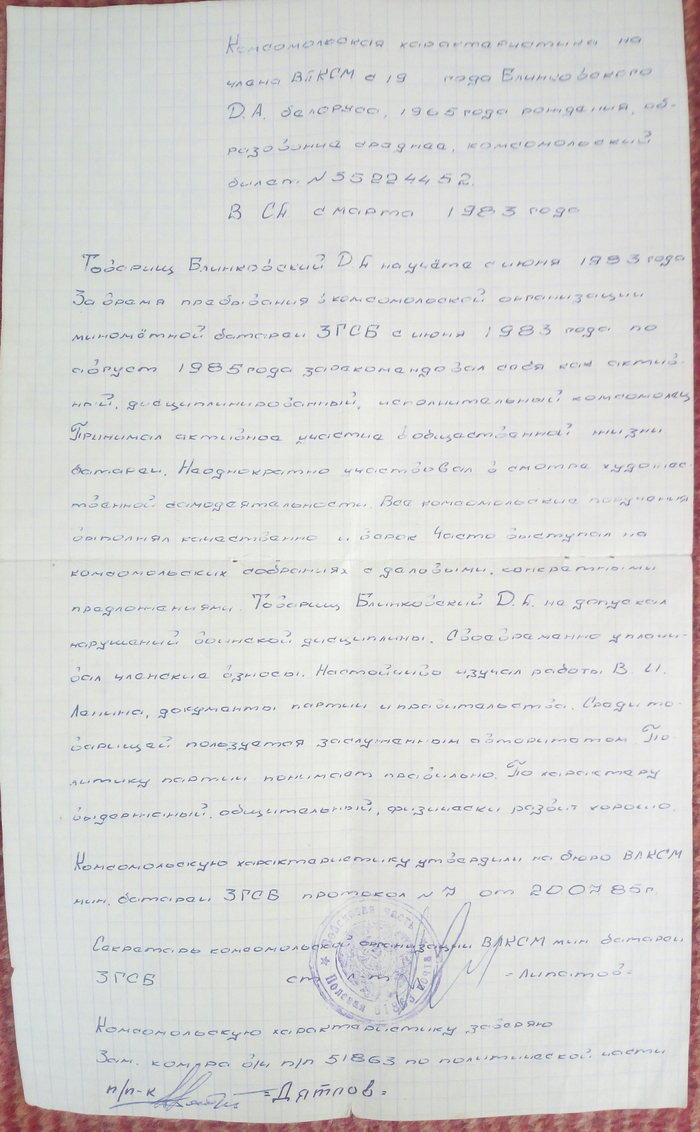 Комсомольская характеристика на
члена ВЛКСМ с 19 года Блинковского
Д.А. белоруса, 1965 года рождения, об-
разование среднее, комсомольский
билет N 35224452.
В СА с марта 1983 года
Товарищ Блинковский Д.А на учёте с июня 1983 года
За время пребывания в комсомольской организации
миномётной батареи 3ГСБ с июня 1983 года по
август 1985 года зарекомендовал себя как актив-
ный, дисциплинированный, исполнительный комсомолец
Принимал активное участие в общественной жизни
батареи. Неоднократно участвовал в смотре художес-
твенной самодеятельности. Все комсомольские поручения
выполнял качественно и в срок Часто выступал на
комсомольских собраниях с деловыми, конкретными
предложениями. Товарищ Блинковский Д.А. не допускал
нарушений воинской дисциплины. Своевременно уплачи-
вал членские взносы. Настойчиво изучал работы В. И.
Ленина, документы партии и правительства. Среди то-
варищей пользуется заслуженным авторитетом. По-
литику партии понимает правильно. По характеру
выдержаный, общительный, физически развит хорошо.
Комсомольскую характеристику утвердили на бюро ВЛКСМ
мин. батареи 3ГСБ протокол N 7 от 200785г.
Секретарь комсомольской организации ВЛКСМ мин батареи
3ГСБ ст -Липатов-
Войсковая часть
Полевая почта
Комсомольскую характеристику заверяю
Зам. ком-ра в/ч п/п 51863 по политической части
п/п-к =Дятлов=